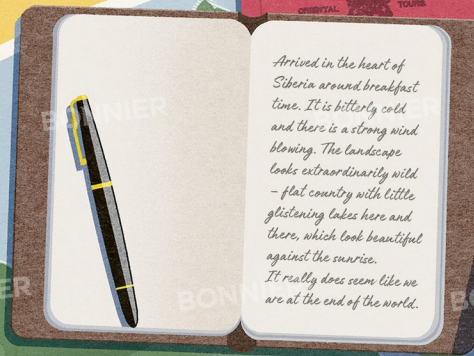 ORIENTAL TOURS
Arrived in the heart of
Siberia around breakfast
time. It is bitterly cold
and there is a strong wind
blowing. The landscape
looks extraordinarily wild
– flat country with little
glistening lakes here and
there, which look beautiful
against the sunrise.
It really does seem like we
are at the end of the world.
BONNIER
BONNIER
ER
BONNIER
BO